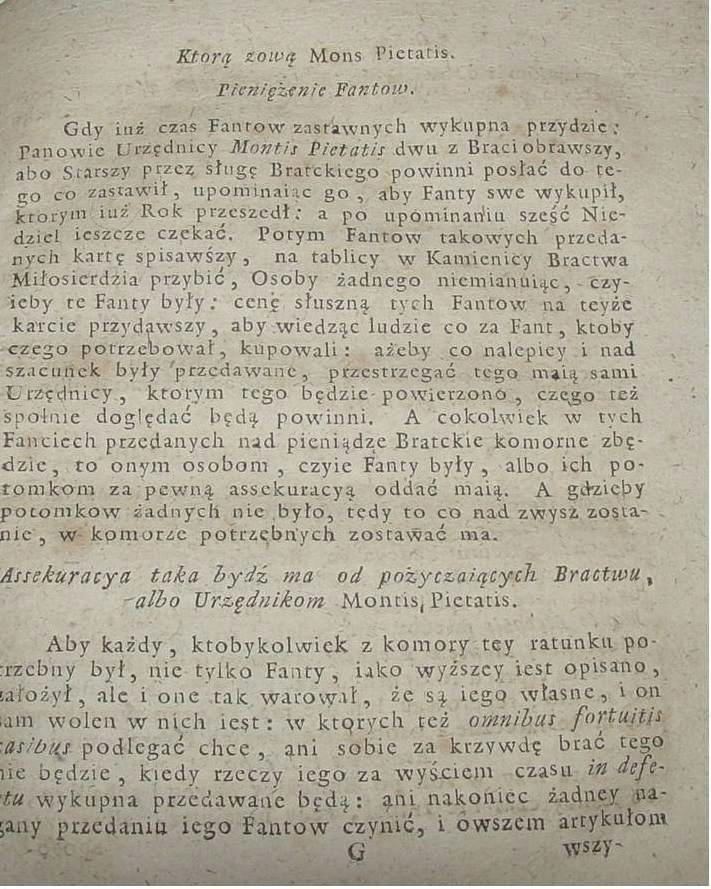 Ktorą zową Mons Pietatis.
Pieniężenie Fantow.
Gdy iuż czas Fantow zastawnych wykupna przydzie;
Panowie Urzędnicy Montis Pietatis dwu z Braci obrawszy,
abo Starszy przez sługę Bratckiego powinni posłać do te-
go co zastawił, upominaiąc go, aby Fanty swe wykupił,
ktorym iuż Rok przeszedł: a po upominaniu sześć Nie-
dziel ieszcze czekać. Potym Fantow takowych przeda-
nych kartę spisawszy, na tablicy w Kamienicy Bractwa
Miłosierdzia przybić, Osoby żadnego niemianuiąc, czy-
ieby te Fanty były: cenę słuszną tych Fantow na teyże
karcie przydawszy, aby wiedząc ludzie co za Fant, ktoby
czego potrzebował, kupowali: ażeby co nalepiey i nad
szacunek były przedawane, przestrzegać tego maią sami
Urzędnicy, ktorym tego będzie powierzono, czego też
społnie doględać będą powinni. A cokolwiek w tych
Fanciech przedanych nad pieniądze Bratckie komorne zbę-
dzie, to onym osobom, czyie Fanty były, albo ich po-
tomkom za pewną assekuracyą oddać maią. A gdzieby
potomkow żadnych nie było, tedy to co nad zwysz zosta-
nie, w komorze potrzębnych zostawać ma.
Assekuracya taka bydź ma od pożyczaiących Bractwu,
albo Urzędnikom Montis Pietatis.
Aby każdy, ktobykolwiek z komory tey ratunku po-
trzebny był, nie tylko Fanty, iako wyższey iest opisano,
założył, ale i one tak warował, że są iego własne, i on
sam wolen w nich iest: w ktorych też omnibus fortuitis
casibus podlegać chce, ani sobie za krzywdę brać tego
nie będzie, kiedy rzeczy iego za wyściem czasu in defe-
ctu wykupna przedawane będą: ani nakoniec żadney na-
gany przedaniu iego Fantow czynić, i owszem artykułom
G wszy-